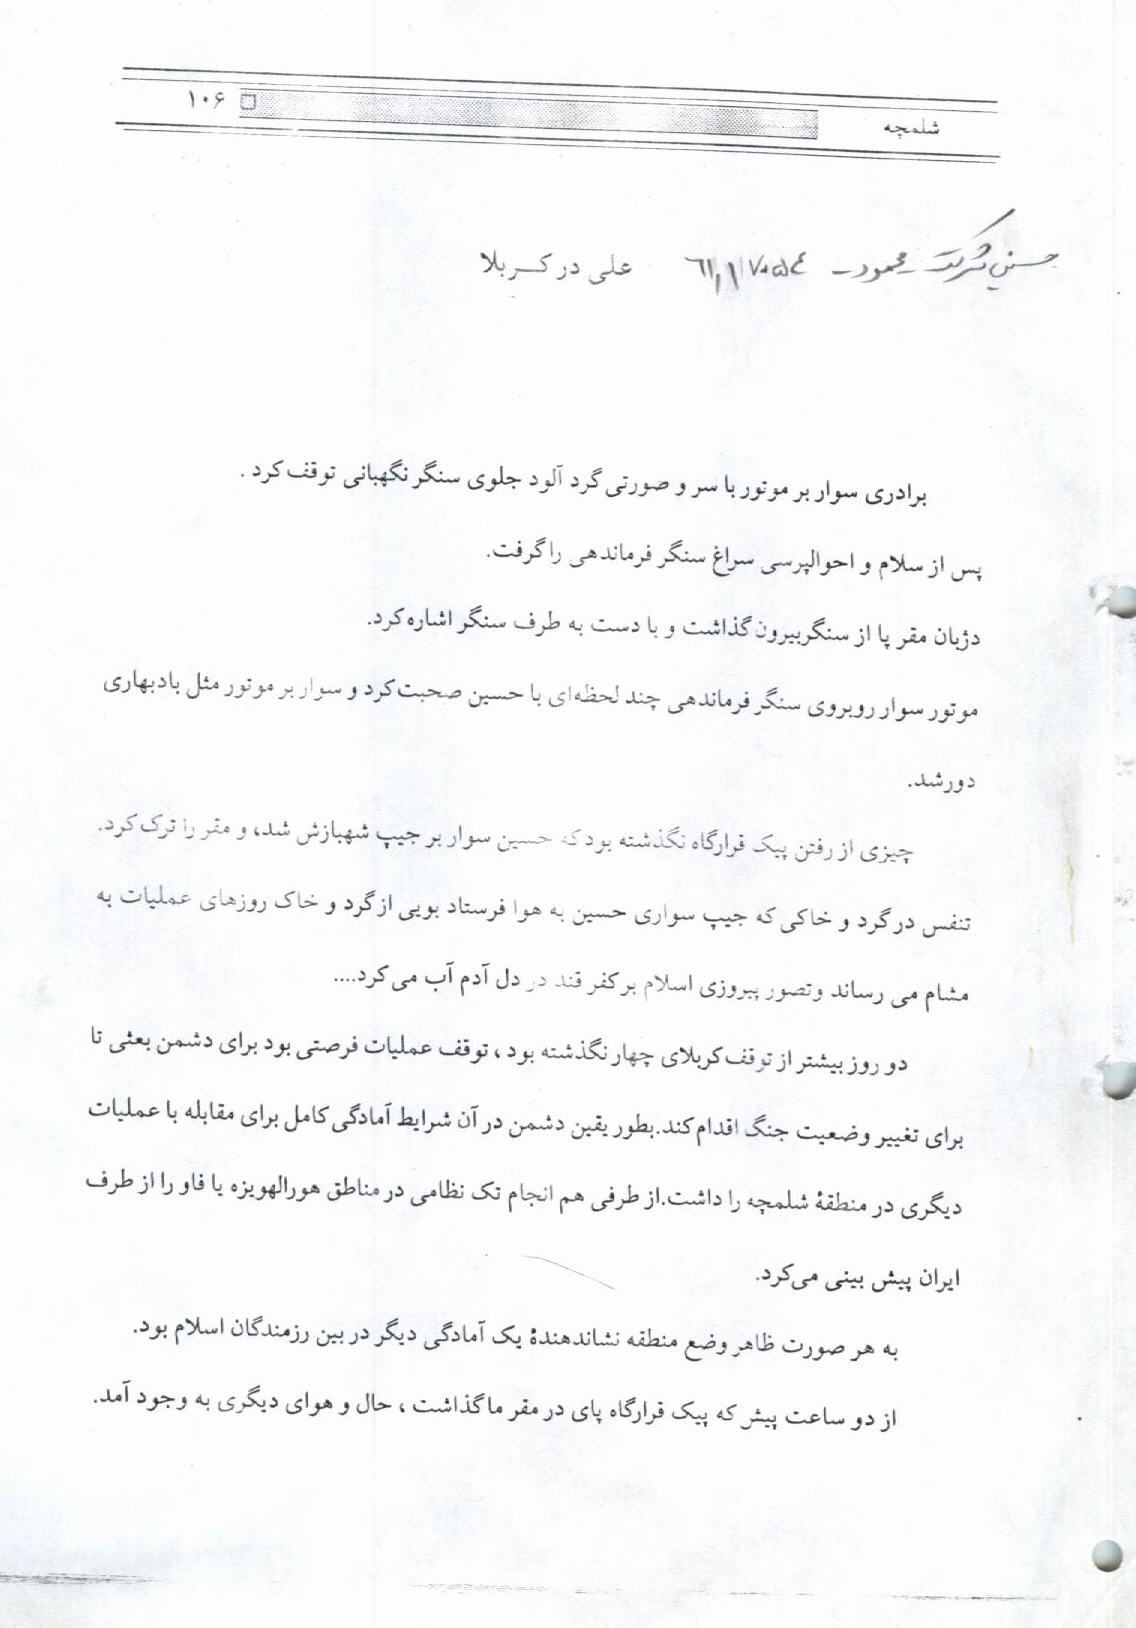 شلمچه
۱۰۶
حسنی شوکت - محمود - ٦١,١١٧٠٥٤
علی در کربلا
برادری سوار بر موتور با سر و صورتی گرد آلود جلوی سنگر نگهبانی توقف کرد .
پس از سلام و احوالپرسی سراغ سنگر فرماندهی را گرفت.
دژبان مقر پا از سنگر بیرون گذاشت و با دست به طرف سنگر اشاره کرد.
موتور سوار روبروی سنگر فرماندهی چند لحظه‌ای با حسین صحبت کرد و سوار بر موتور مثل باد بهاری
دور شد.
چیزی از رفتن پیک قرارگاه نگذشته بود که حسین سوار بر جیپ شهبازش شد، و مقر را ترک کرد.
تنفس در گرد و خاکی که جیپ سواری حسین به هوا فرستاد بویی از گرد و خاک روزهای عملیات به
مشام می رساند و تصور پیروزی اسلام بر کفر قند در دل آدم آب می‌کرد....
دو روز بیشتر از توقف کربلای چهار نگذشته بود ، توقف عملیات فرصتی بود برای دشمن بعثی تا
برای تغییر وضعیت جنگ اقدام کند.بطور یقین دشمن در آن شرایط آمادگی کامل برای مقابله با عملیات
دیگری در منطقهٔ شلمچه را داشت.از طرفی هم انجام تک نظامی در مناطق هورالهویزه یا فاو را از طرف
ایران پیش بینی می‌کرد.
به هر صورت ظاهر وضع منطقه نشاندهندهٔ یک آمادگی دیگر در بین رزمندگان اسلام بود.
از دو ساعت پیش که پیک قرارگاه پای در مقر ما گذاشت ، حال و هوای دیگری به وجود آمد.